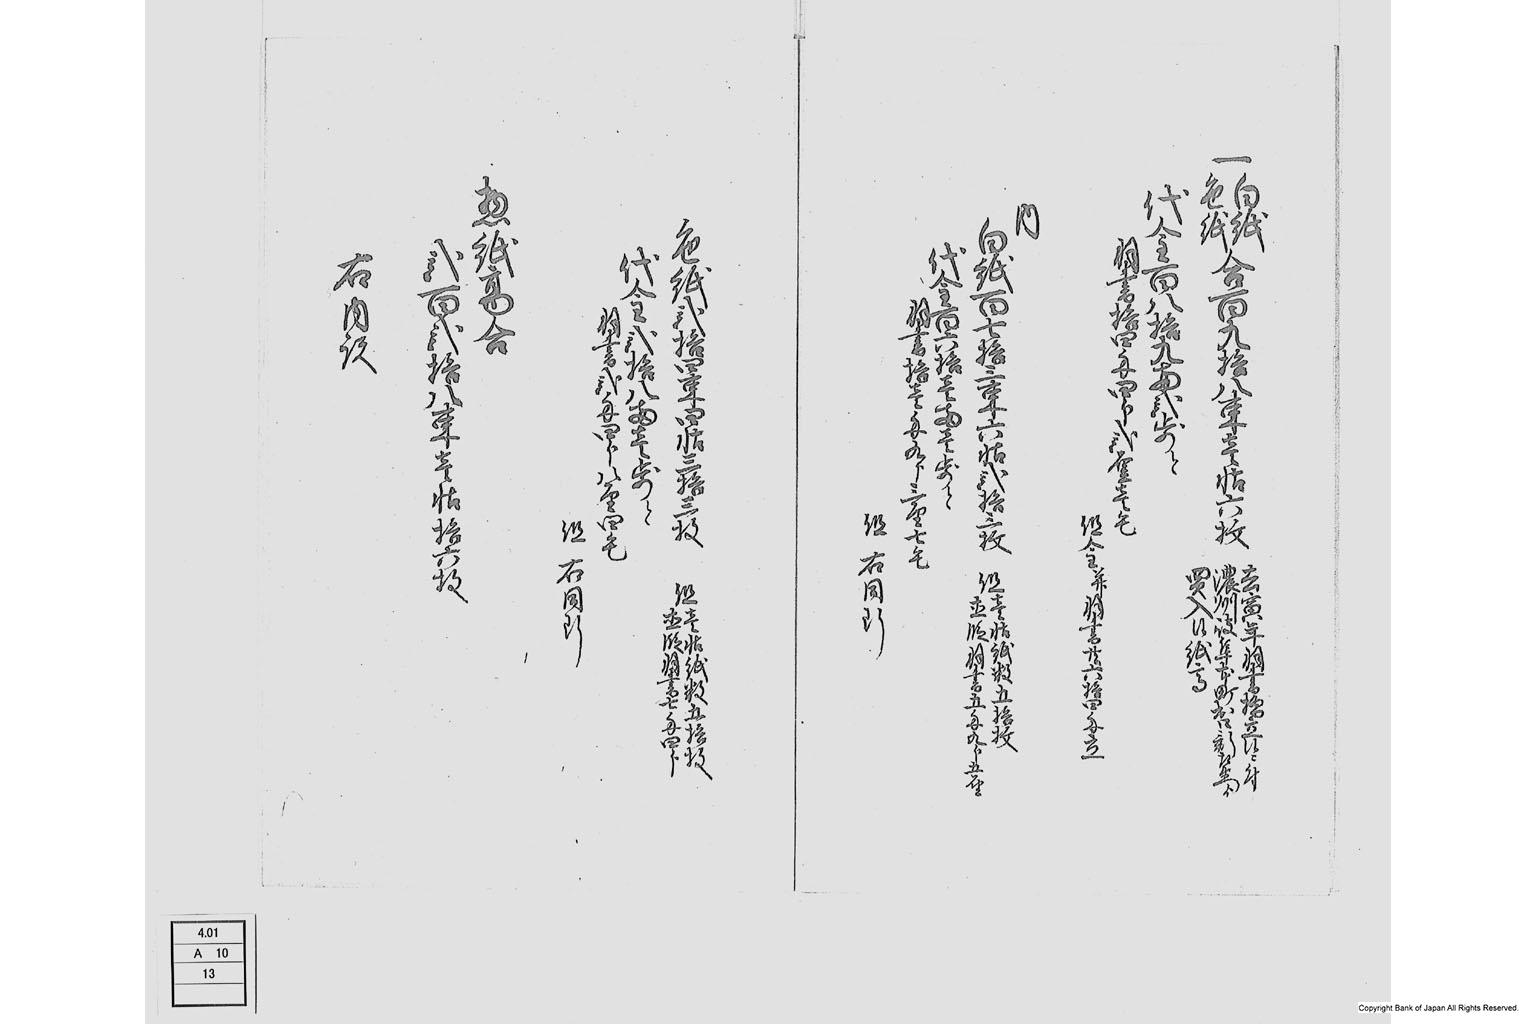 一 白紙
色紙
合百九拾八束壱帖六枚
寅年羽書
濃州岐阜本町
買入候紙高
代金百八拾九両弐歩と
羽書拾四匁四分弐厘壱毛
但金并羽書六拾四匁立
内
白紙百七拾三束六帖弐拾三枚
但壱帖紙数五拾枚
壱束直段羽書五匁九分五厘
代金百六拾壱両壱歩と
羽書拾壱匁九分三厘七毛
但右同断
色紙弐拾四束四帖三拾三枚
但壱帖紙数五拾枚
壱束直段羽書七匁四分
代金弐拾八両壱歩と
羽書弐匁四分八厘四毛
但右同断
惣紙高合
弐百弐拾八束壱帖拾六枚
右内訳
4.01
A 10
13
Copyright Bank of Japan All Rights Reserved.